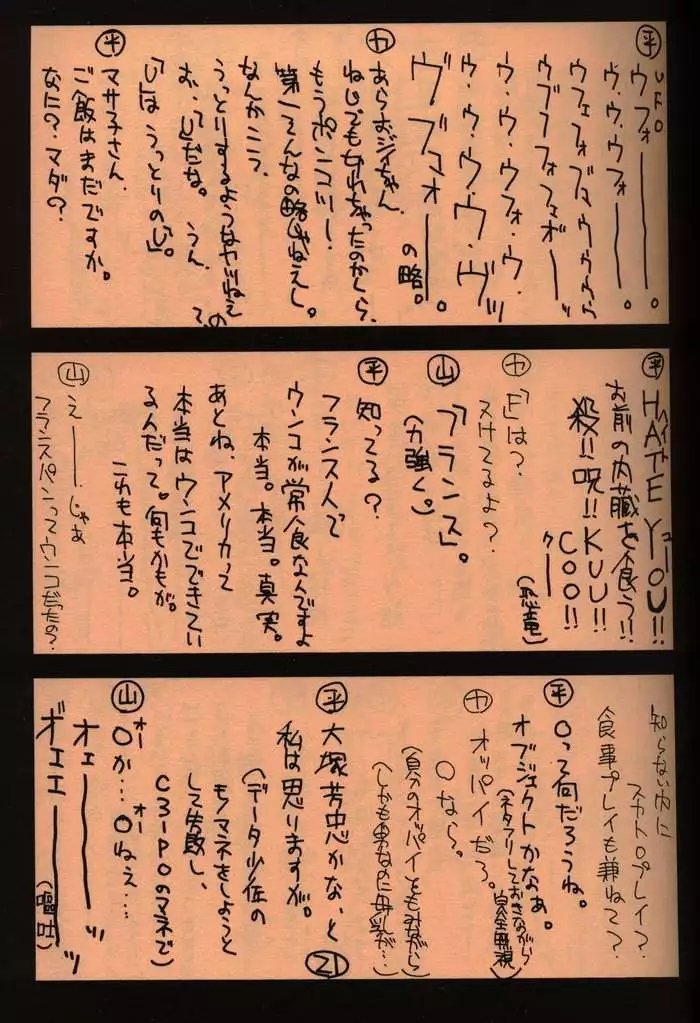 ㊥
UFO
ウフォ───。
ウ、ウ、ウフォ───。
ウフェフォブマウウウウ
ウブブフォフェボーッ
ウ・ウ・ウフォ・ウ・
ウ・ウ・ウ・ウ・ヴッ
ヴブマォ───。
の略。
カ
あらおジイちゃん、
ねじでもなれちゃったのかしら、
もうポンコツー!
第一そんなの略じゃねえし。
なんかこう、
うっとりするようなヤツねえの
お、「U」だな。 うん、 て、
「U」は うっとりの「U」。
平
マサ子さん、
ご飯はまだですか。
なに?マダ?
平
HATE YOU!!
ヘイト ユー
お前の内臓を食う!!
殺!!呪!! KUU!!
COO!!
クー
(恐竜)
カ
「F」は?
ヌけてるよ?
山
「フランス」。
(力強く。)
平
知ってる?
フランス人で
ウンコが常食なんですよ
本当。本当。真実。
あとね、アメリカって
本当はウンコでできてい
るんだって。何もかもが。
これも本当。
山
えー──、じゃあ
フランスパンってウンコだったの?
知らない内に
スカトロプレイ?
食事プレイも兼ねて?
平
Oって何だろうね。
オブジェクトかなぁ。
(ネタフリしておきながら
完全無視)
カ
オッパイだろ。
Oなら。
(自分のオッパイをもみながら)
(しかも男なのに母乳が…)
平
大塚芳忠かな、と
私は思りますが。
(データ少佐の
モノマネをしようと
して失敗し、
C3-POのマネで)
21
山
Oか…Oねぇ…
オー オー
オェ───ッ
ボエエ───ッ
(嘔吐)